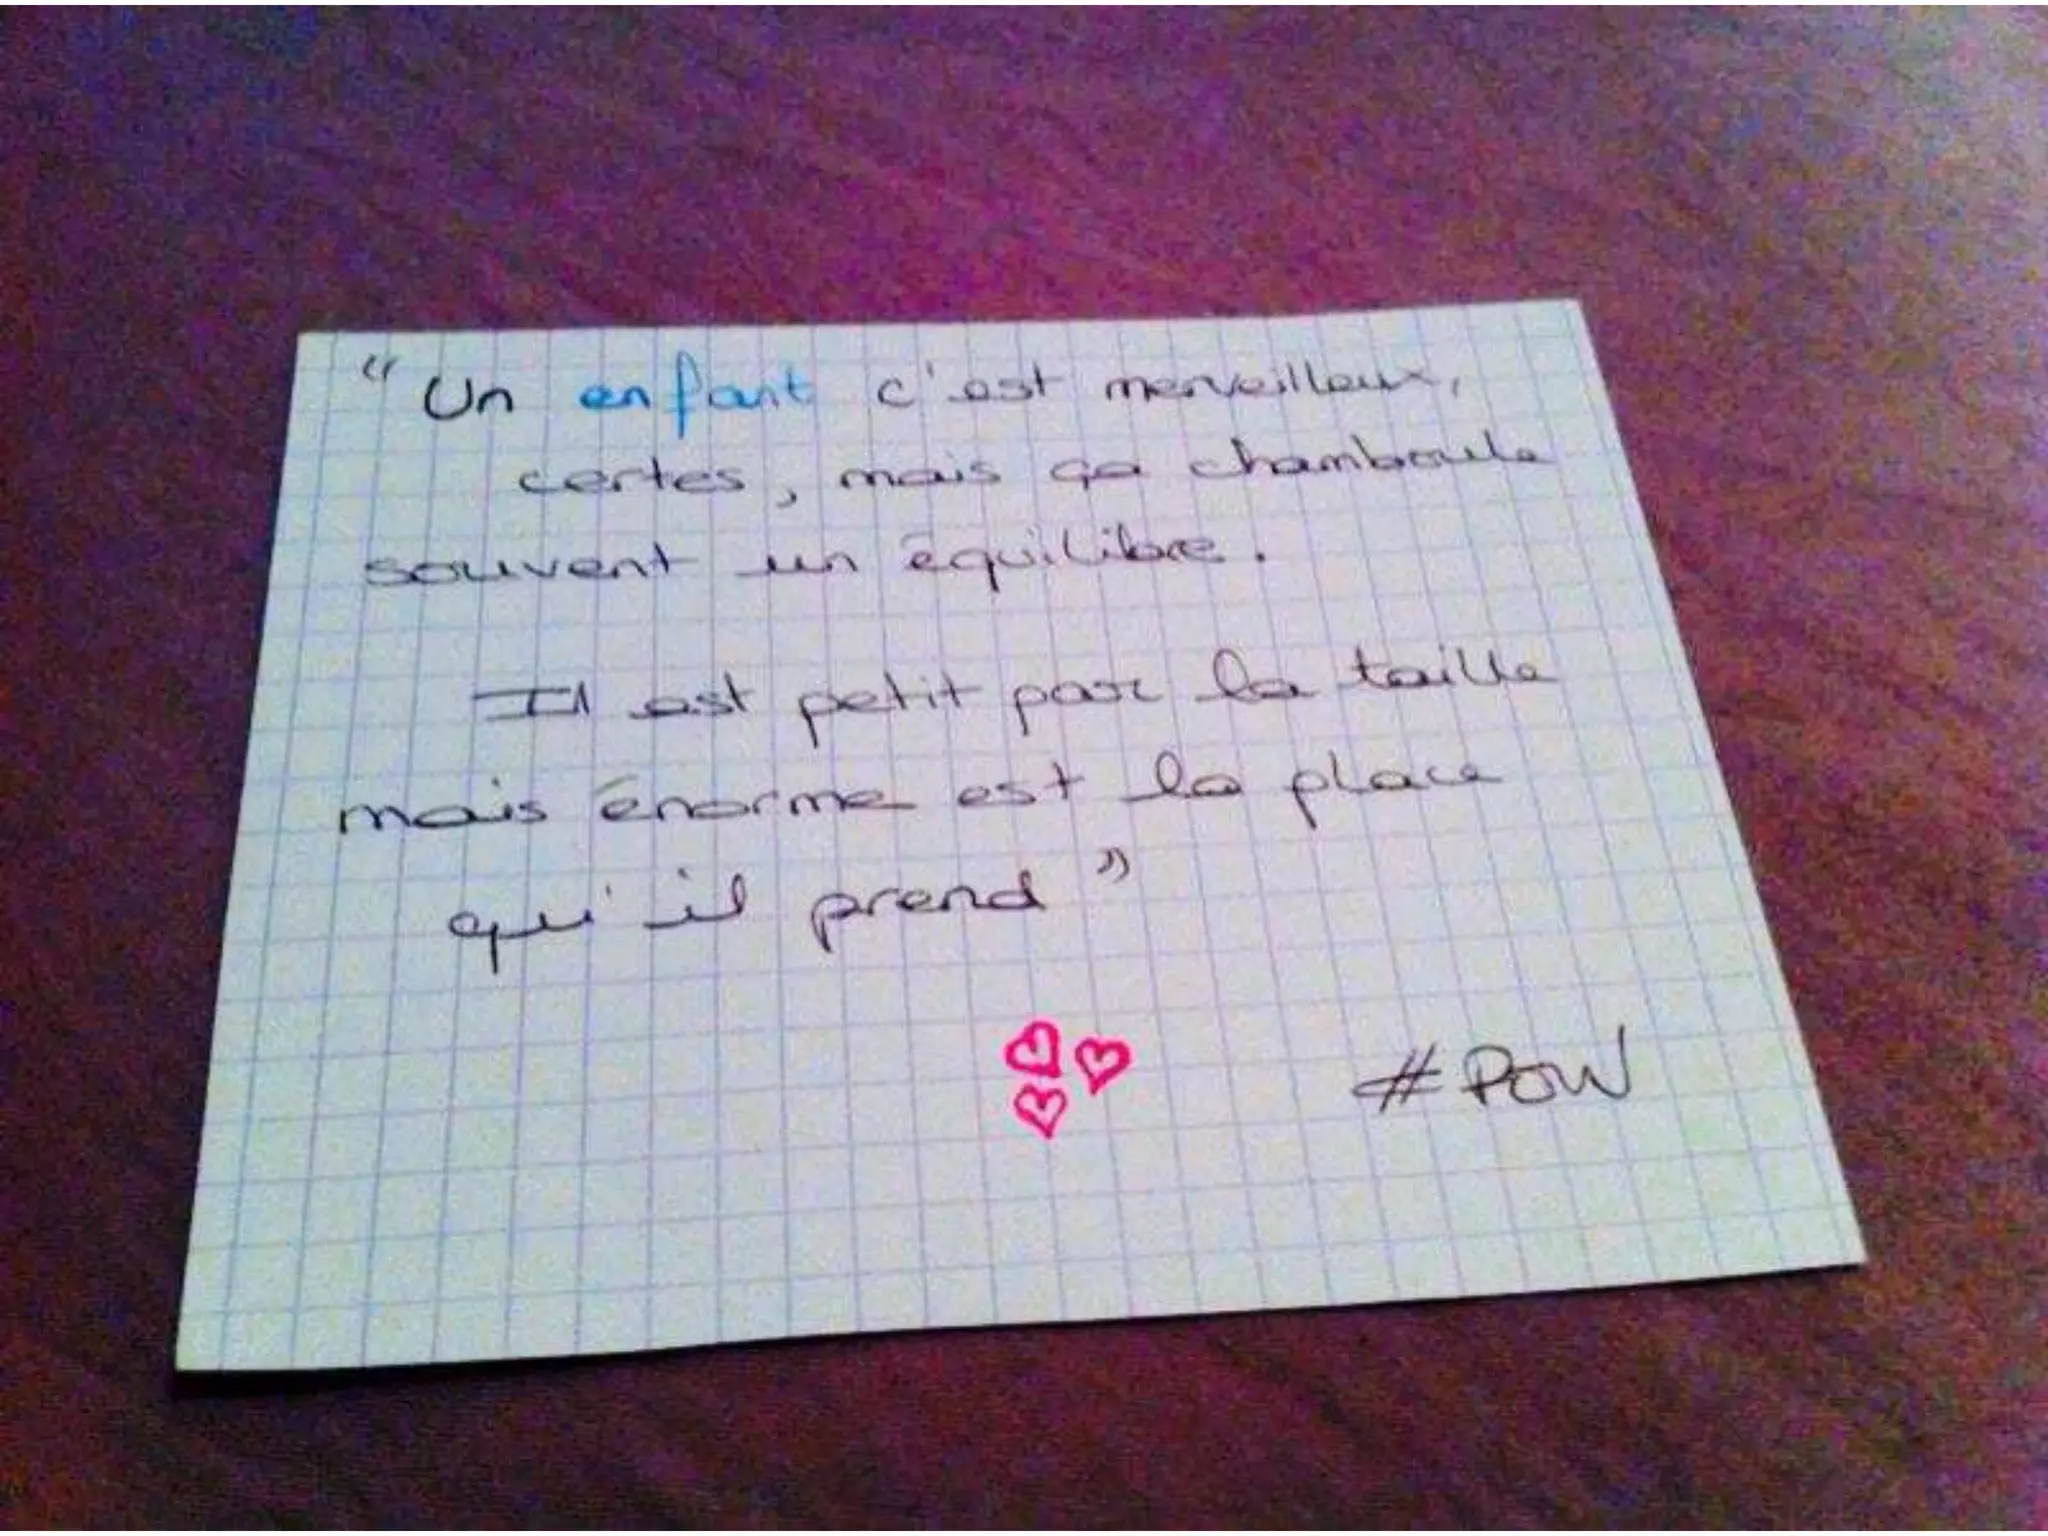 “Un enfant c'est merveilleux,
certes, mais ça chamboule
souvent un équilibre.
Il est petit par la taille
mais énorme est la place
qu'il prend”
#POW